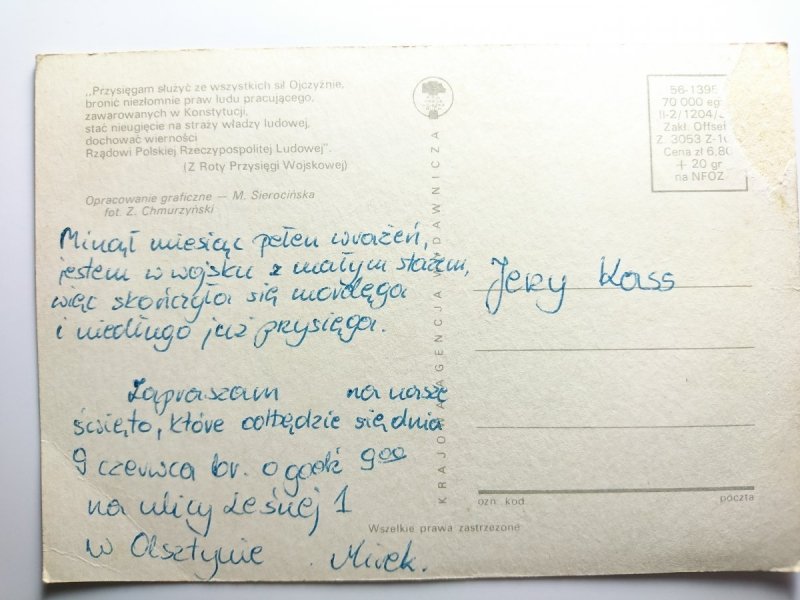 „Przysięgam służyć ze wszystkich sił Ojczyźnie,
bronić niezłomnie praw ludu pracującego,
zawarowanych w Konstytucji,
stać nieugięcie na straży władzy ludowej,
dochować wierności
Rządowi Polskiej Rzeczypospolitej Ludowej".
(Z Roty Przysięgi Wojskowej)
Opracowanie graficzne — M. Sierocińska
fot. Z. Chmurzyński
Minął miesiąc pełen wrażeń,
jestem w wojsku z małym stażem,
więc skończyła się mordęga
i niedługo już przysięga.
Zapraszam na nasze
święto, które odbędzie się dnia
9 czerwca br. o godz 9⁰⁰
na ulicy Leśnej 1
w Olsztynie Mirek.
KRAJOWA AGENCJA WYDAWNICZA
56-139
70 000 eg
II-2/1204/
Zakł. Offset
Z. 3053 Z-1
Cena zł 6,80
+ 20 gr
na NFOZ
Jerzy Kass
ozn. kod poczta
Wszelkie prawa zastrzeżone